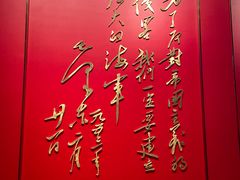 为了反对帝国主义的
侵略我们一定要建立
强大的海军
毛泽东
一九五三年
二月
廿一日